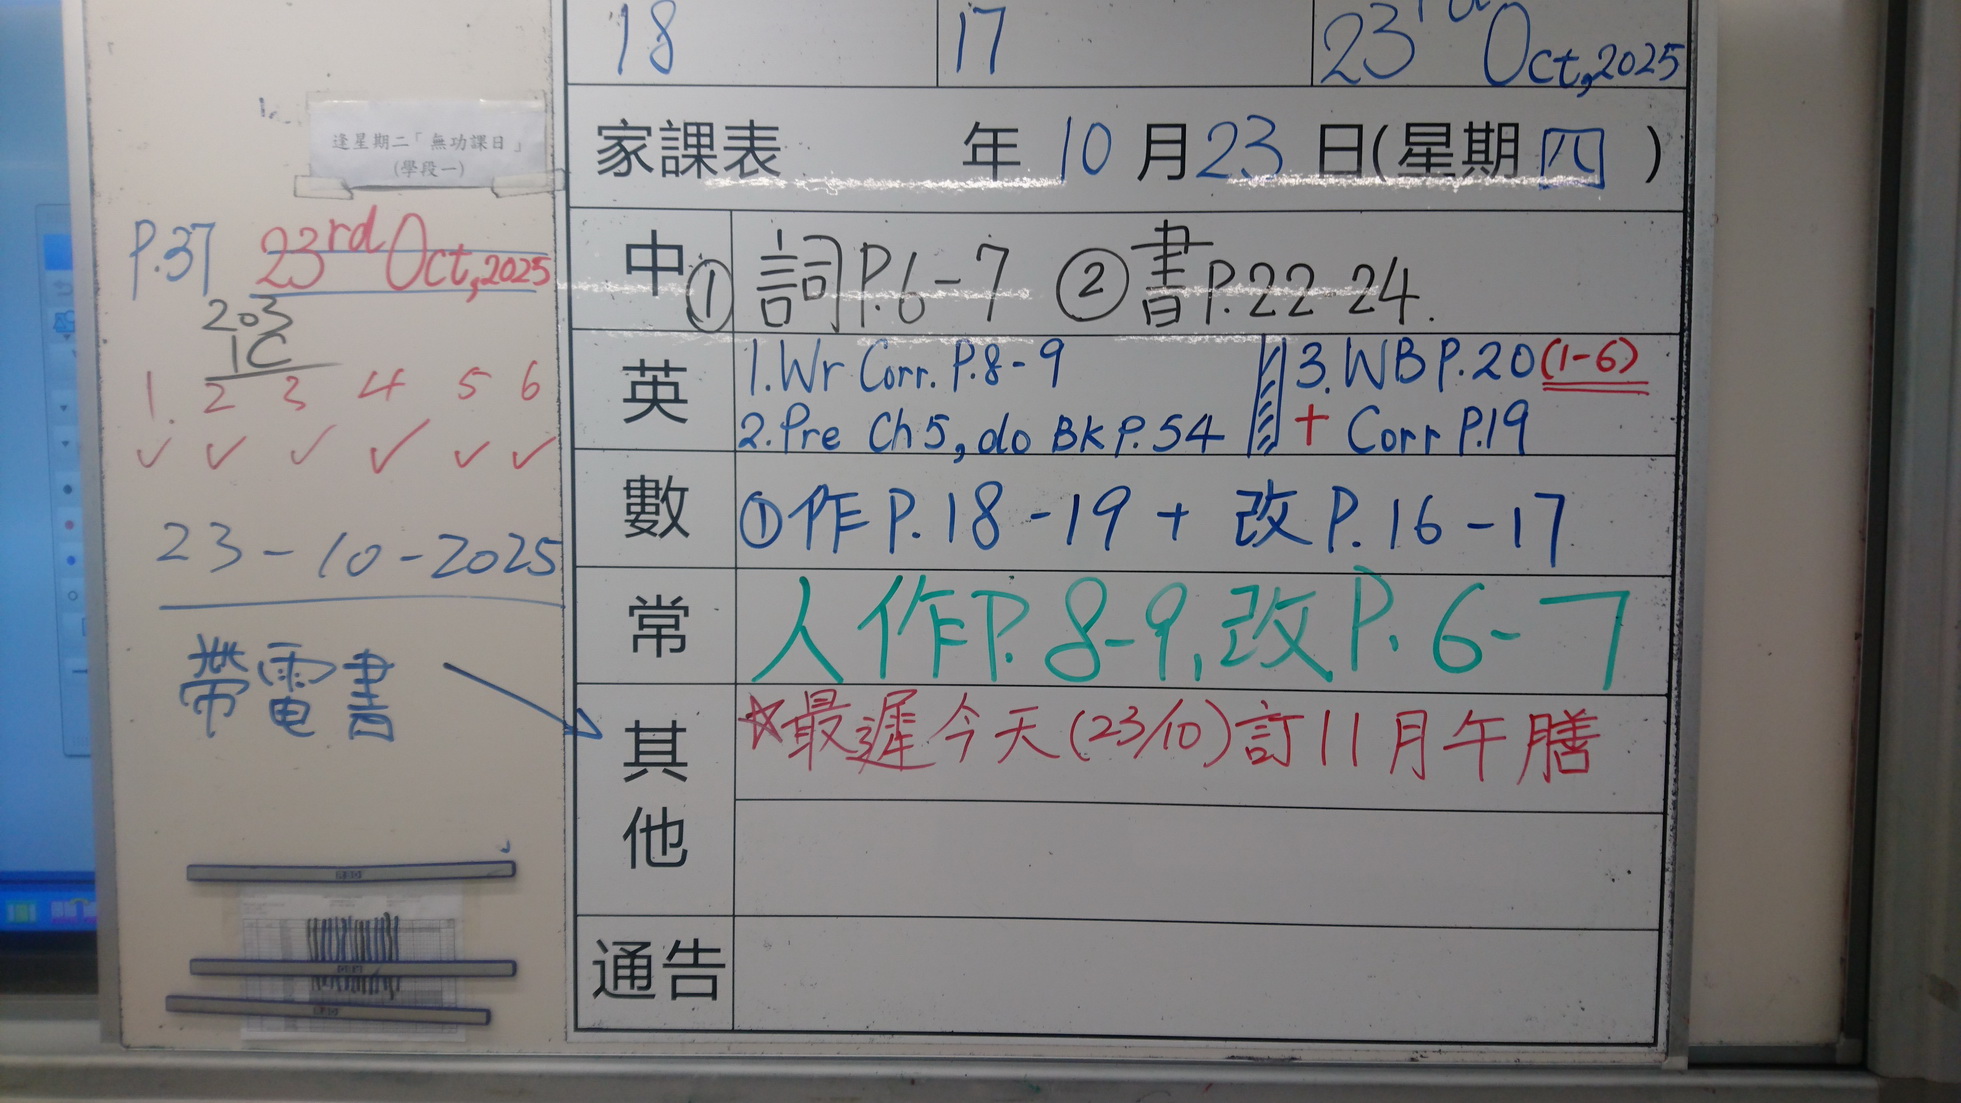 18 17 23rd Oct, 2025
逢星期二「無功課日」
(學段一)
家課表 年 10 月 23 日(星期 四 )
P.37 23rd Oct, 2025
203
1C
1. 2 3 4 5 6
✓ ✓ ✓ ✓ ✓ ✓
23-10-2025
帶電書
中 ① 詞P.6-7 ② 書P.22-24.
英 1. Wr Corr. P.8-9
2. Pre Ch5, do BK P.54
3. WB P.20 (1-6)
+ Corr P.19
數 ① 作 P.18-19 + 改 P.16-17
常 人作P.8-9, 改P.6-7
其他 ☆最遲今天(23/10)訂11月午膳
通告